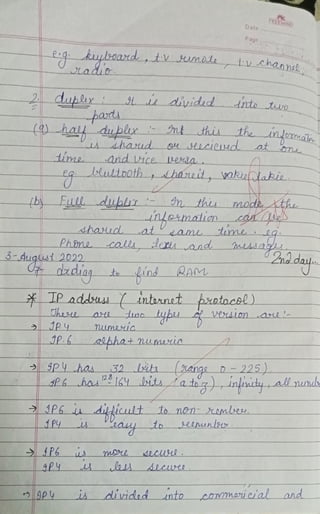 Date
Page
e.g. keyboard, t.v remote, t.v channel,
radio.
2. duplex : It is divided into two
parts
(a) half duplex :- Int this the informain
is shared or recieved at one
time and vice versa.
eg bluttooth, shareit, walkie
(b) Full duplex :- In this mode the
information can be
shared at same time. eg.
Phone calls, and messages.
3-August 2022 2nd day..
* dxdiag to find RAM
* IP address ( internet protocol)
There are two types of version are :-
→ IP4 numeric
IP.6 alpha + numeric
→ IP4 has 32 bits (range 0-225).
IP6 has 128 bits (a to z), infinity, all numb
→ IP6 is difficult to non-rember.
IP4 is easy to
→ IP6 is more secure.
IP4 is less secure
→ IP4 is divided into commericial and